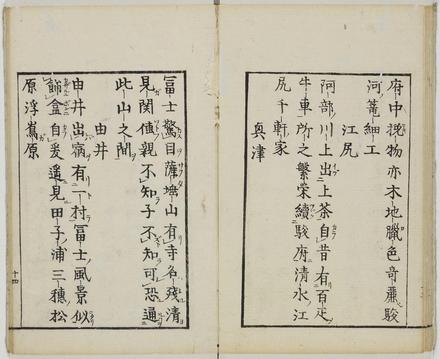 府中挽物亦木地臈色奇麗駿
河篭細工
江尻
阿部川上出上茶自昔有百疋
牛車所之繁栄續駿府清水江
尻千軒家
奥津
冨士驚目薩埵山有寺名残清
見関傳親不知子不知可恐通
此山之間
由井
由井出宿有一村冨士風景似
飾盒自爰遥見田子浦三穂松
原浮嶌原
十四